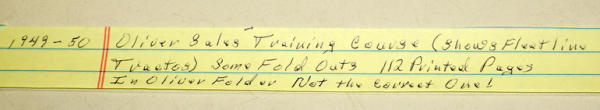 1949-50 Oliver Sales Training Course (Shows Fleetline
Tractos) Some Fold Outs 112 Printed Pages
In Oliver Folder Not the Correct One!